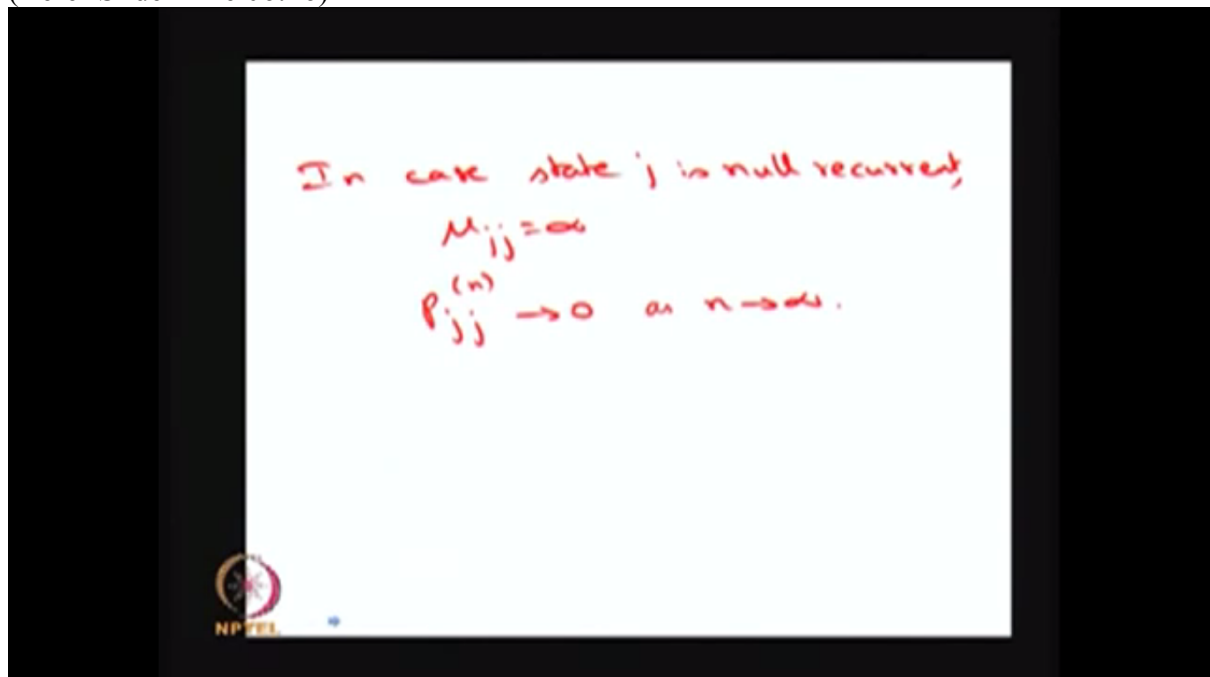 In case state j is null recurrent,
μjj = ∞
Pjj(n) → 0 as n → ∞.
NPTEL